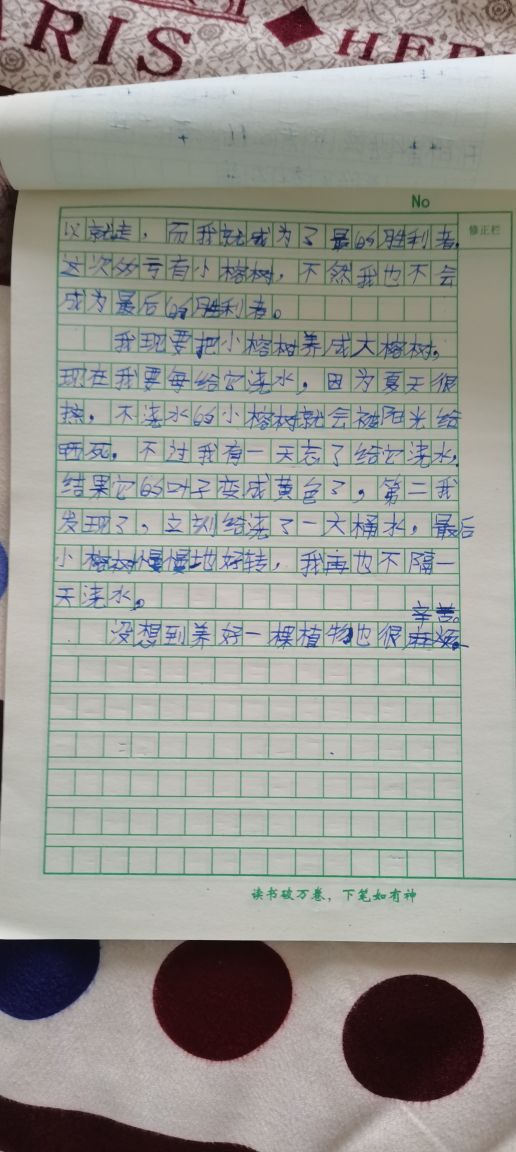 ARIS HER
No
修正栏
以就走，而我就成为了最的胜利者。
这次的亏有小榕树，不然我也不会
成为最后的胜利者。
我现要把小榕树养成大榕树。
现在我要每给它浇水，因为夏天很
热，不浇水的小榕树就会被阳光给
晒死。不过我有一天忘了给它浇水，
结果它的叶子变成黄色了，第二我
发现了，立刻给浇了一大桶水，最后
小榕树慢慢地好转，我再也不隔一
天浇水。
辛苦。
没想到养好一棵植物也很
读书破万卷，下笔如有神